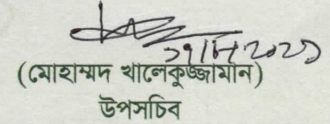 (মোহাম্মদ খালেকুজ্জামান)
উপসচিব